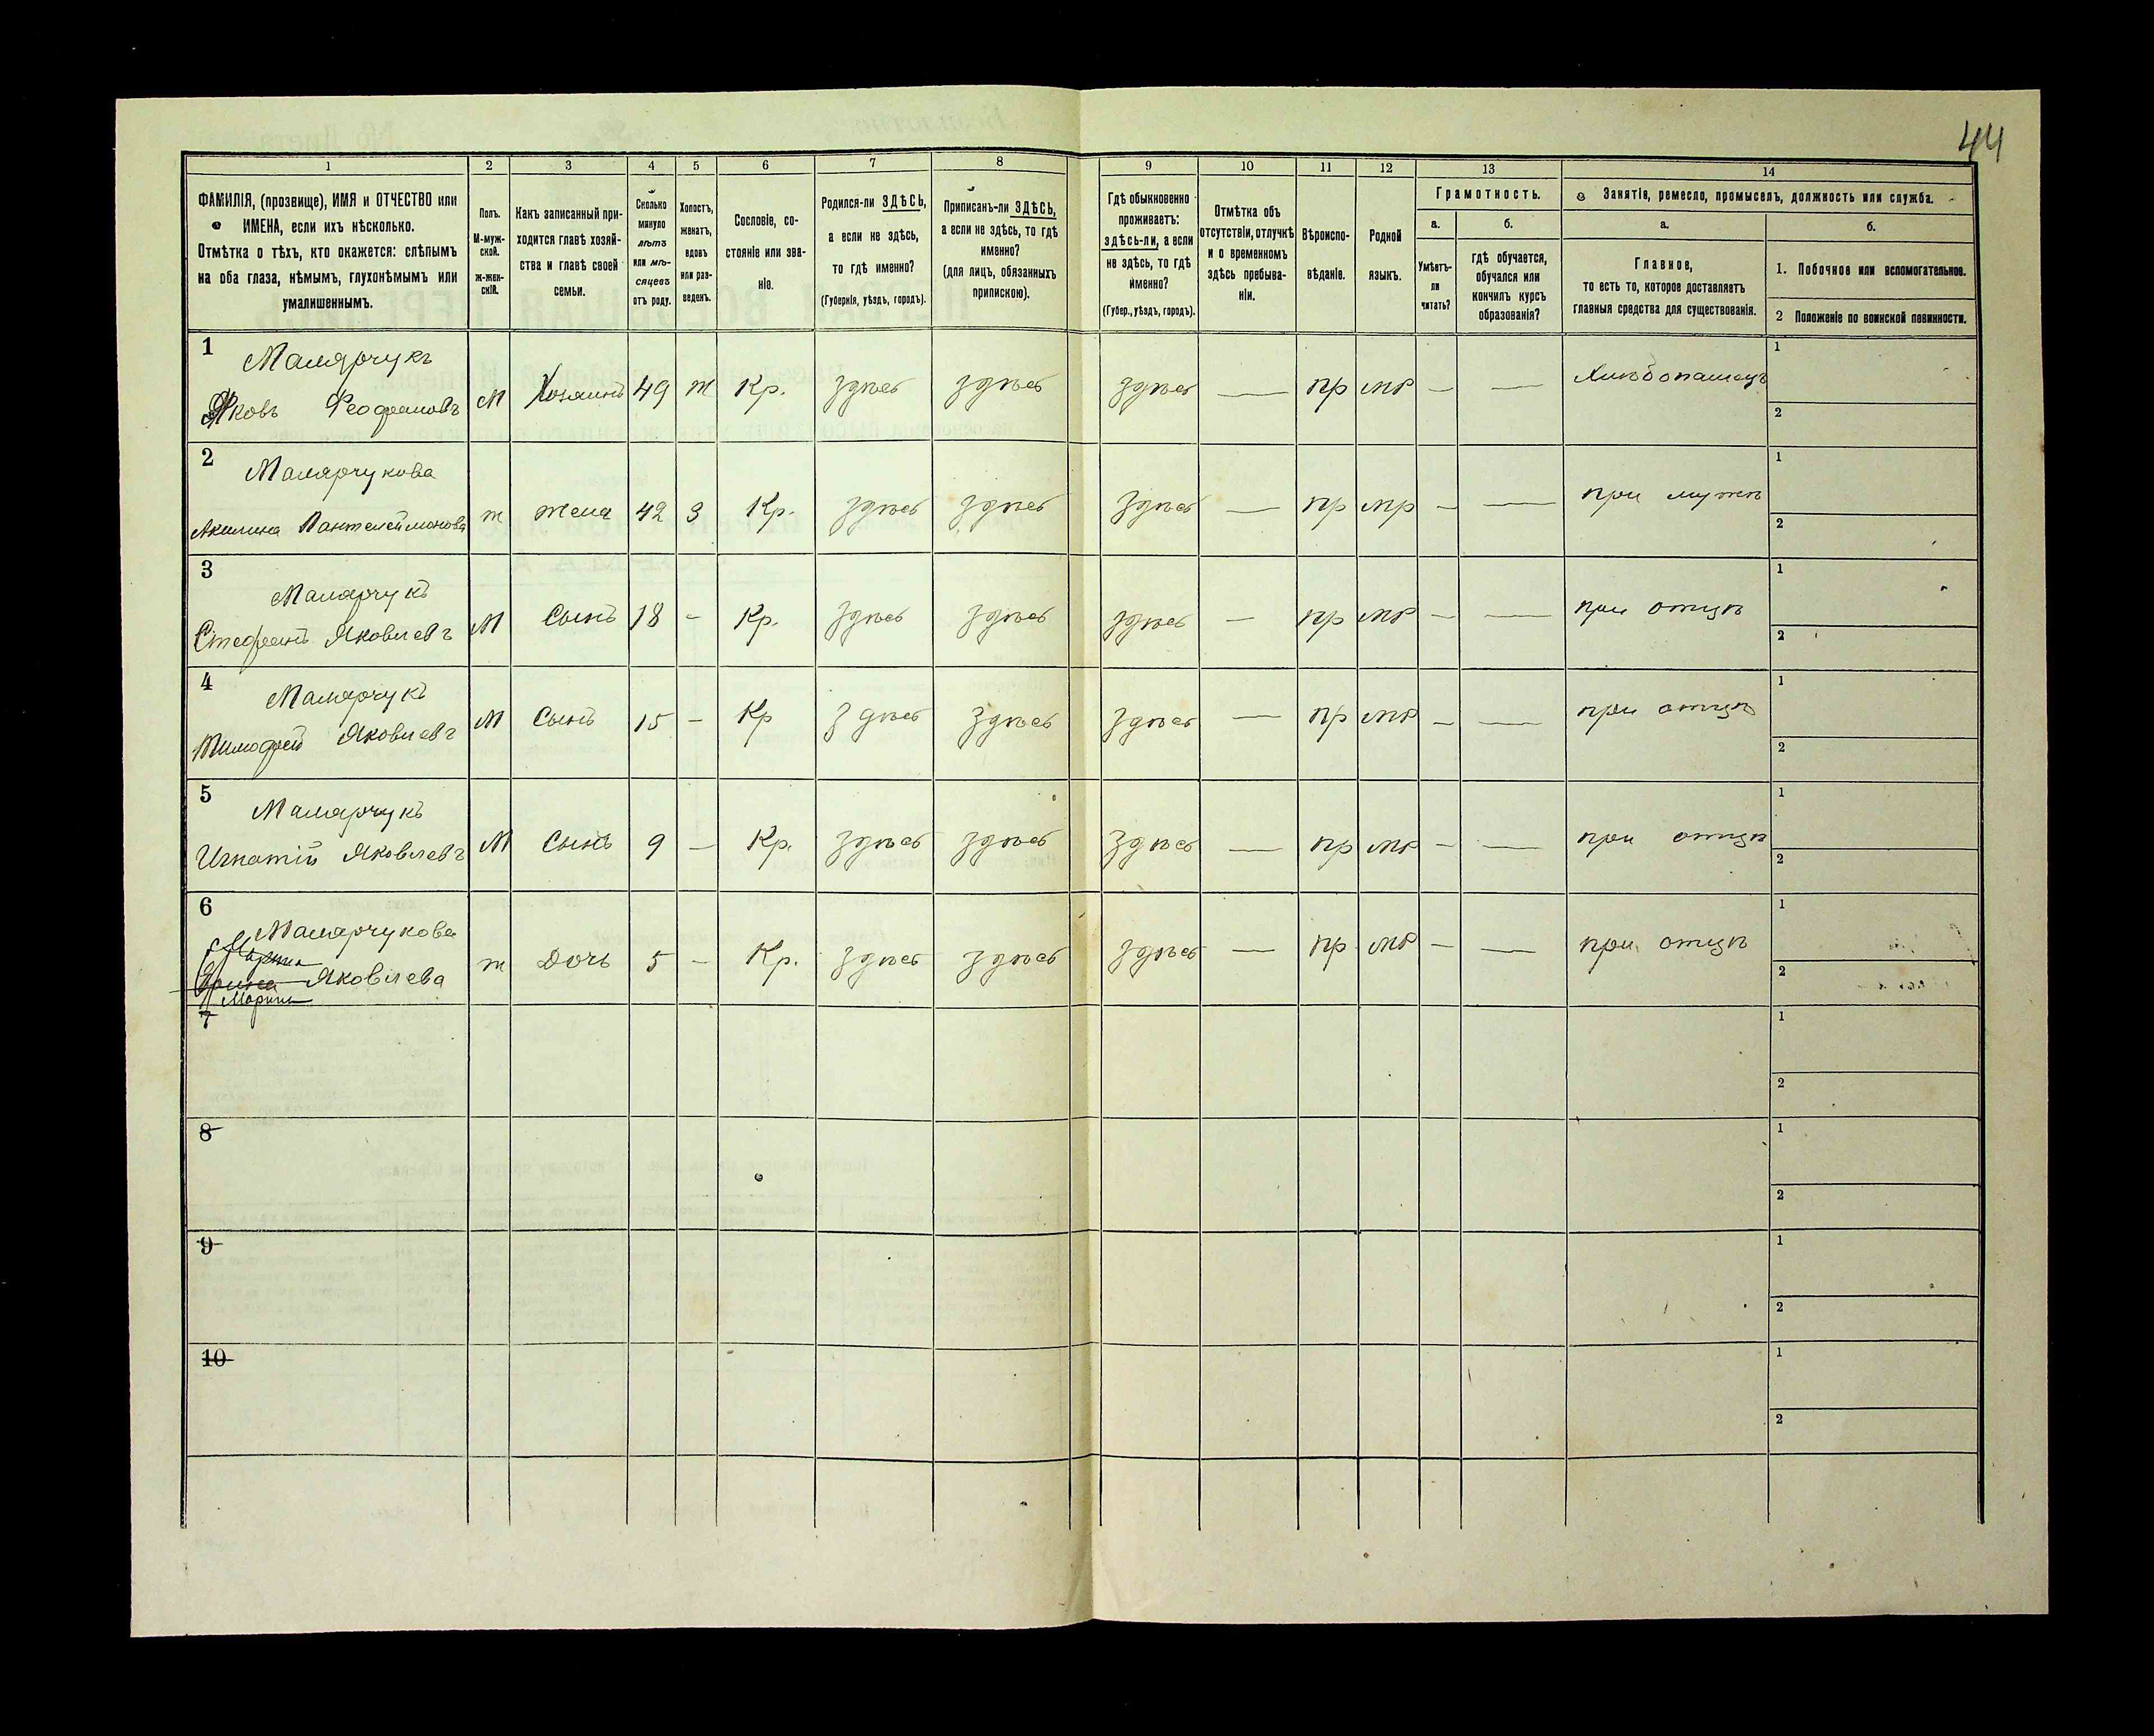 44
1 2 3 4 5 6 7 8 9 10 11 12 13 14
ФАМИЛІЯ, (прозвище), ИМЯ и ОТЧЕСТВО или
ИМЕНА, если ихъ нѣсколько.
Отмѣтка о тѣхъ, кто окажется: слѣпымъ
на оба глаза, нѣмымъ, глухонѣмымъ или
умалишеннымъ.
Полъ.
М-муж-
ской.
ж-жен-
скій.
Какъ записанный при-
ходится главѣ хозяй-
ства и главѣ своей
семьи.
Сколько
минуло
лѣтъ
или мѣ-
сяцевъ
отъ роду.
Холостъ,
женатъ,
вдовъ
или раз-
веденъ.
Сословіе, со-
стояніе или зва-
ніе.
Родился-ли ЗДѢСЬ,
а если не здѣсь,
то гдѣ именно?
(Губернія, уѣздъ, городъ).
Приписанъ-ли ЗДѢСЬ,
а если не здѣсь, то гдѣ
именно?
(для лицъ, обязанныхъ
припискою).
Гдѣ обыкновенно
проживаетъ:
здѣсь-ли, а если
не здѣсь, то гдѣ
именно?
(Губер., уѣздъ, городъ).
Отмѣтка объ
отсутствіи, отлучкѣ
и о временномъ
здѣсь пребыва-
ніи.
Вѣроиспо-
вѣданіе.
Родной
языкъ.
Грамотность.
а.
Умѣетъ-
ли
читать?
б.
гдѣ обучается,
обучался или
кончилъ курсъ
образованія?
Занятія, ремесло, промыселъ, должность или служба.
а.
Главное,
то есть то, которое доставляетъ
главныя средства для существованія.
б.
1. Побочное или вспомогательное.
2 Положеніе по воинской повинности.
1 Малярчукъ
Яковъ Феофановъ М Хозяинъ 49 ж Кр. здѣсь здѣсь здѣсь — пр мр — — Хлѣбопашецъ 1 2
2 Малярчукова
Акилина Пантелеймонова ж жена 42 З Кр. здѣсь здѣсь здѣсь — пр мр — — при мужѣ 1 2
3 Малярчукъ
Стефанъ Яковлевъ М Сынъ 18 - Кр. здѣсь здѣсь здѣсь — пр мр — — при отцѣ 1 2
4 Малярчукъ
Тимофей Яковлевъ М Сынъ 15 - Кр здѣсь здѣсь здѣсь — пр мр — — при отцѣ 1 2
5 Малярчукъ
Игнатій Яковлевъ М Сынъ 9 — Кр. здѣсь здѣсь здѣсь — пр мр — — при отцѣ 1 2
6 Малярчукова
Яковлева ж Дочь 5 - Кр. здѣсь здѣсь здѣсь — пр мр — — при отцѣ 1 2
Марина
7 1 2
8 1 2
9 1 2
10 1 2